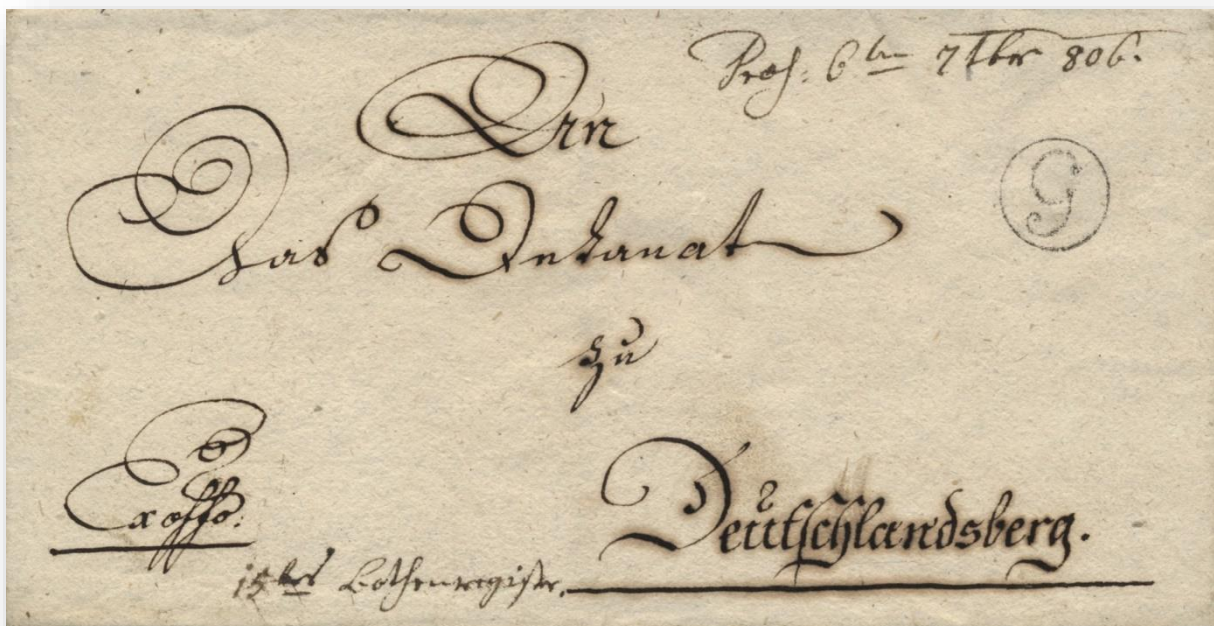 Præs: 6ten 7tber 806.
An
G
das Dekanat
zu
Ex offo:
Deutschlandsberg.
15tes Bothenregister.